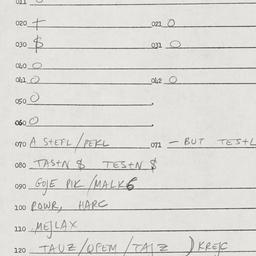 011
020 + 021 O
030 $ 031 O
040 O
041 O 042 O
050 O
060 O
070 A STEFL/PEKL 071 - BUT TESTL
080 TASTN $ TESTN $
090 GOJE PIK/MALK6
100 POWR, HARC
110 MEJLAX
120 TAUZ/OPEM/TAJZ )KREJC